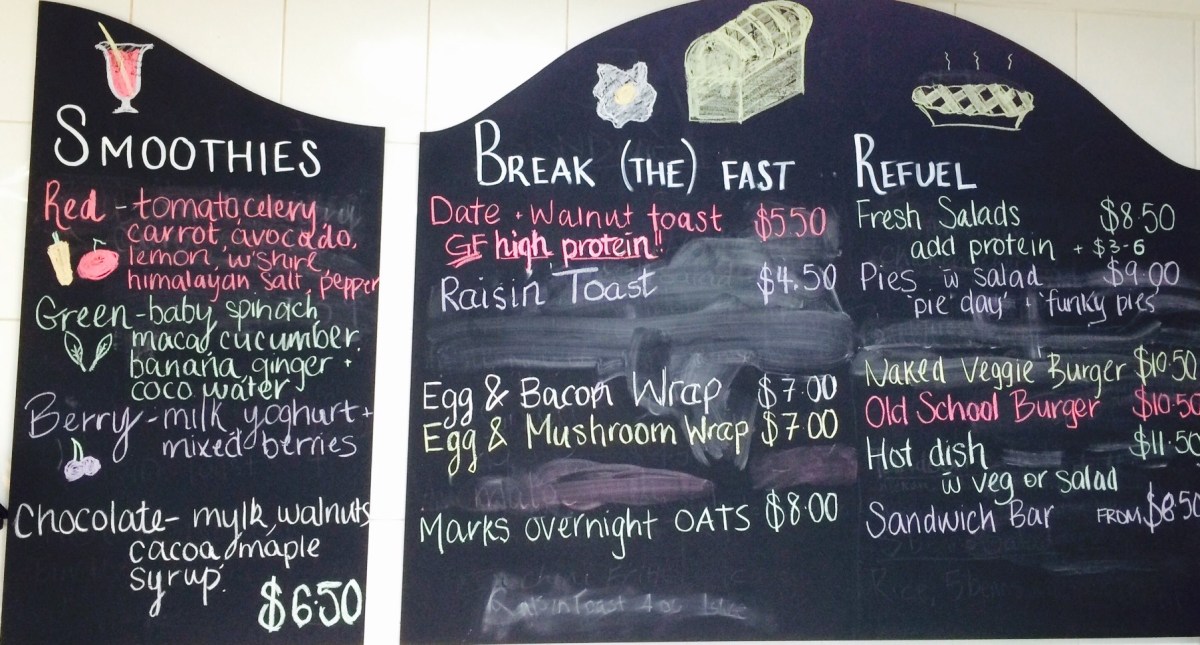 SMOOTHIES
Red - tomato, celery
carrot, avocado,
lemon, w'shire,
himalayan salt, pepper
Green - baby spinach
maca, cucumber,
banana, ginger +
coco water
Berry - milk yoghurt +
mixed berries
Chocolate - mylk, walnuts
cacao, maple
syrup.
$6.50
BREAK (THE) FAST
Date + Walnut toast $5.50
GF high protein!!
Raisin Toast $4.50
Egg & Bacon Wrap $7.00
Egg & Mushroom Wrap $7.00
Marks overnight OATS $8.00
Raisin Toast
REFUEL
Fresh Salads $8.50
add protein + $3-6
Pies w salad $9.00
'pie day' + 'funky pies'
Naked Veggie Burger $10.50
Old School Burger $10.50
Hot dish $11.50
w veg or salad
Sandwich Bar FROM $8.50